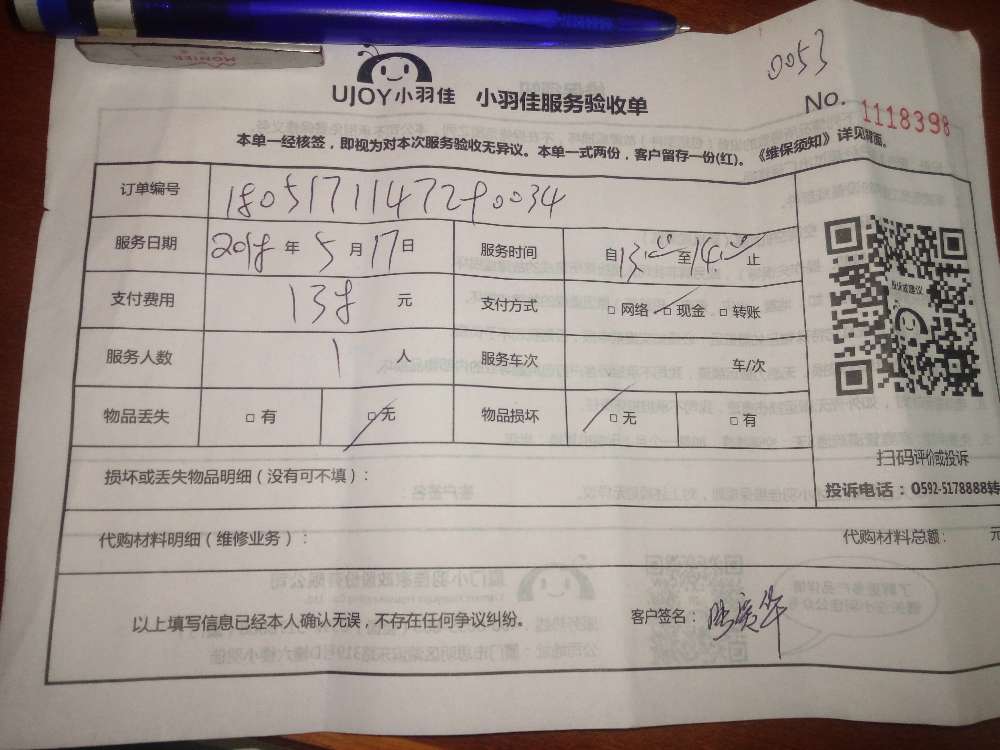 0053
UJOY小羽佳 小羽佳服务验收单
No. 1118398
本单一经核签，即视为对本次服务验收无异议。本单一式两份，客户留存一份(红)。《维保须知》详见背面。
订单编号 1805171147290034
服务日期 2018 年 5 月 17 日 服务时间 自 13:00 至 14:00 止
支付费用 138 元 支付方式 □ 网络 □ 现金 □ 转账
服务人数 1 人 服务车次 车/次
物品丢失 □ 有 □ 无 物品损坏 □ 无 □ 有
扫码评价或投诉
投诉电话：0592-5178888转
损坏或丢失物品明细（没有可不填）：
代购材料明细（维修业务）： 代购材料总额： 元
以上填写信息已经本人确认无误，不存在任何争议纠纷。 客户签名：